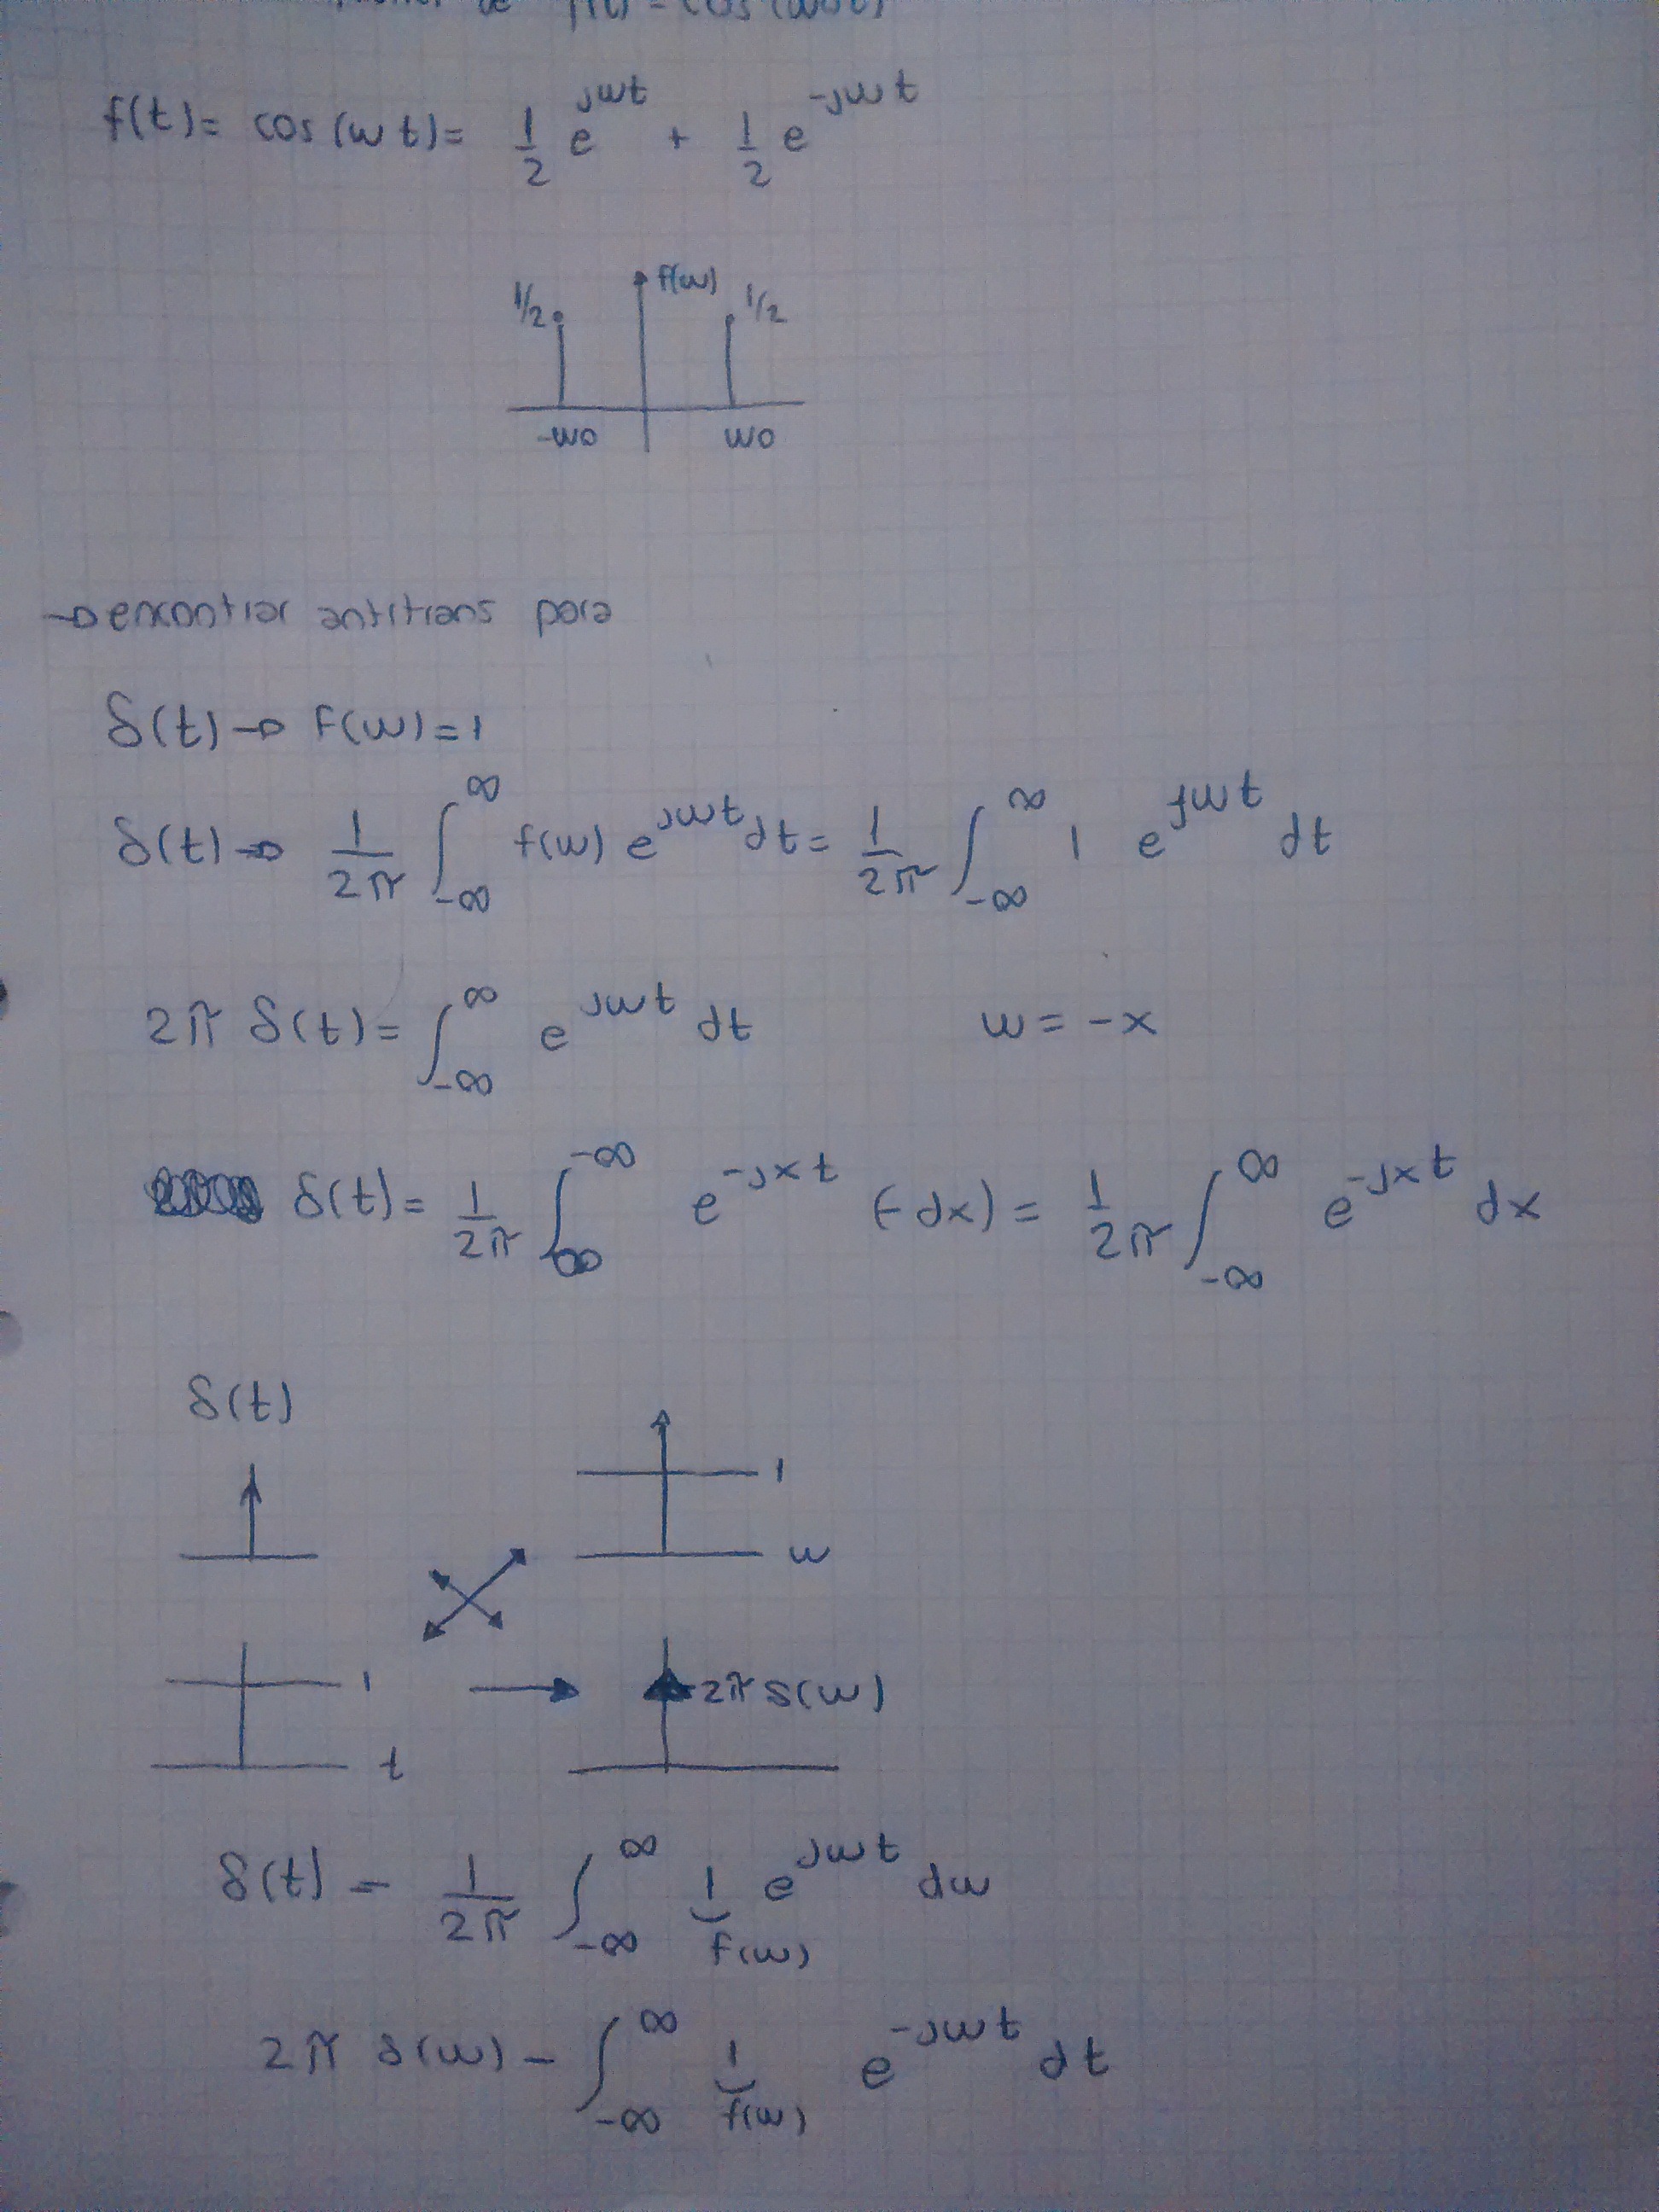 de f(t) = cos(wot)
f(t) = cos(wt) = 1/2 e^jwt + 1/2 e^-jwt
f(w)
1/2 1/2
-wo wo
→ encontrar antitrans para
δ(t) → F(w) = 1
δ(t) → 1/2π ∫_-∞^∞ f(w) e^jwt dt = 1/2π ∫_-∞^∞ 1 e^jwt dt
2π δ(t) = ∫_-∞^∞ e^jwt dt w = -x
δ(t) = 1/2π ∫_∞^-∞ e^-jxt (-dx) = 1/2π ∫_-∞^∞ e^-jxt dx
δ(t)
1
w
1 → 2π δ(w)
t
δ(t) = 1/2π ∫_-∞^∞ 1 e^jwt dw
F(w)
2π δ(w) = ∫_-∞^∞ 1 e^-jwt dt
f(w)